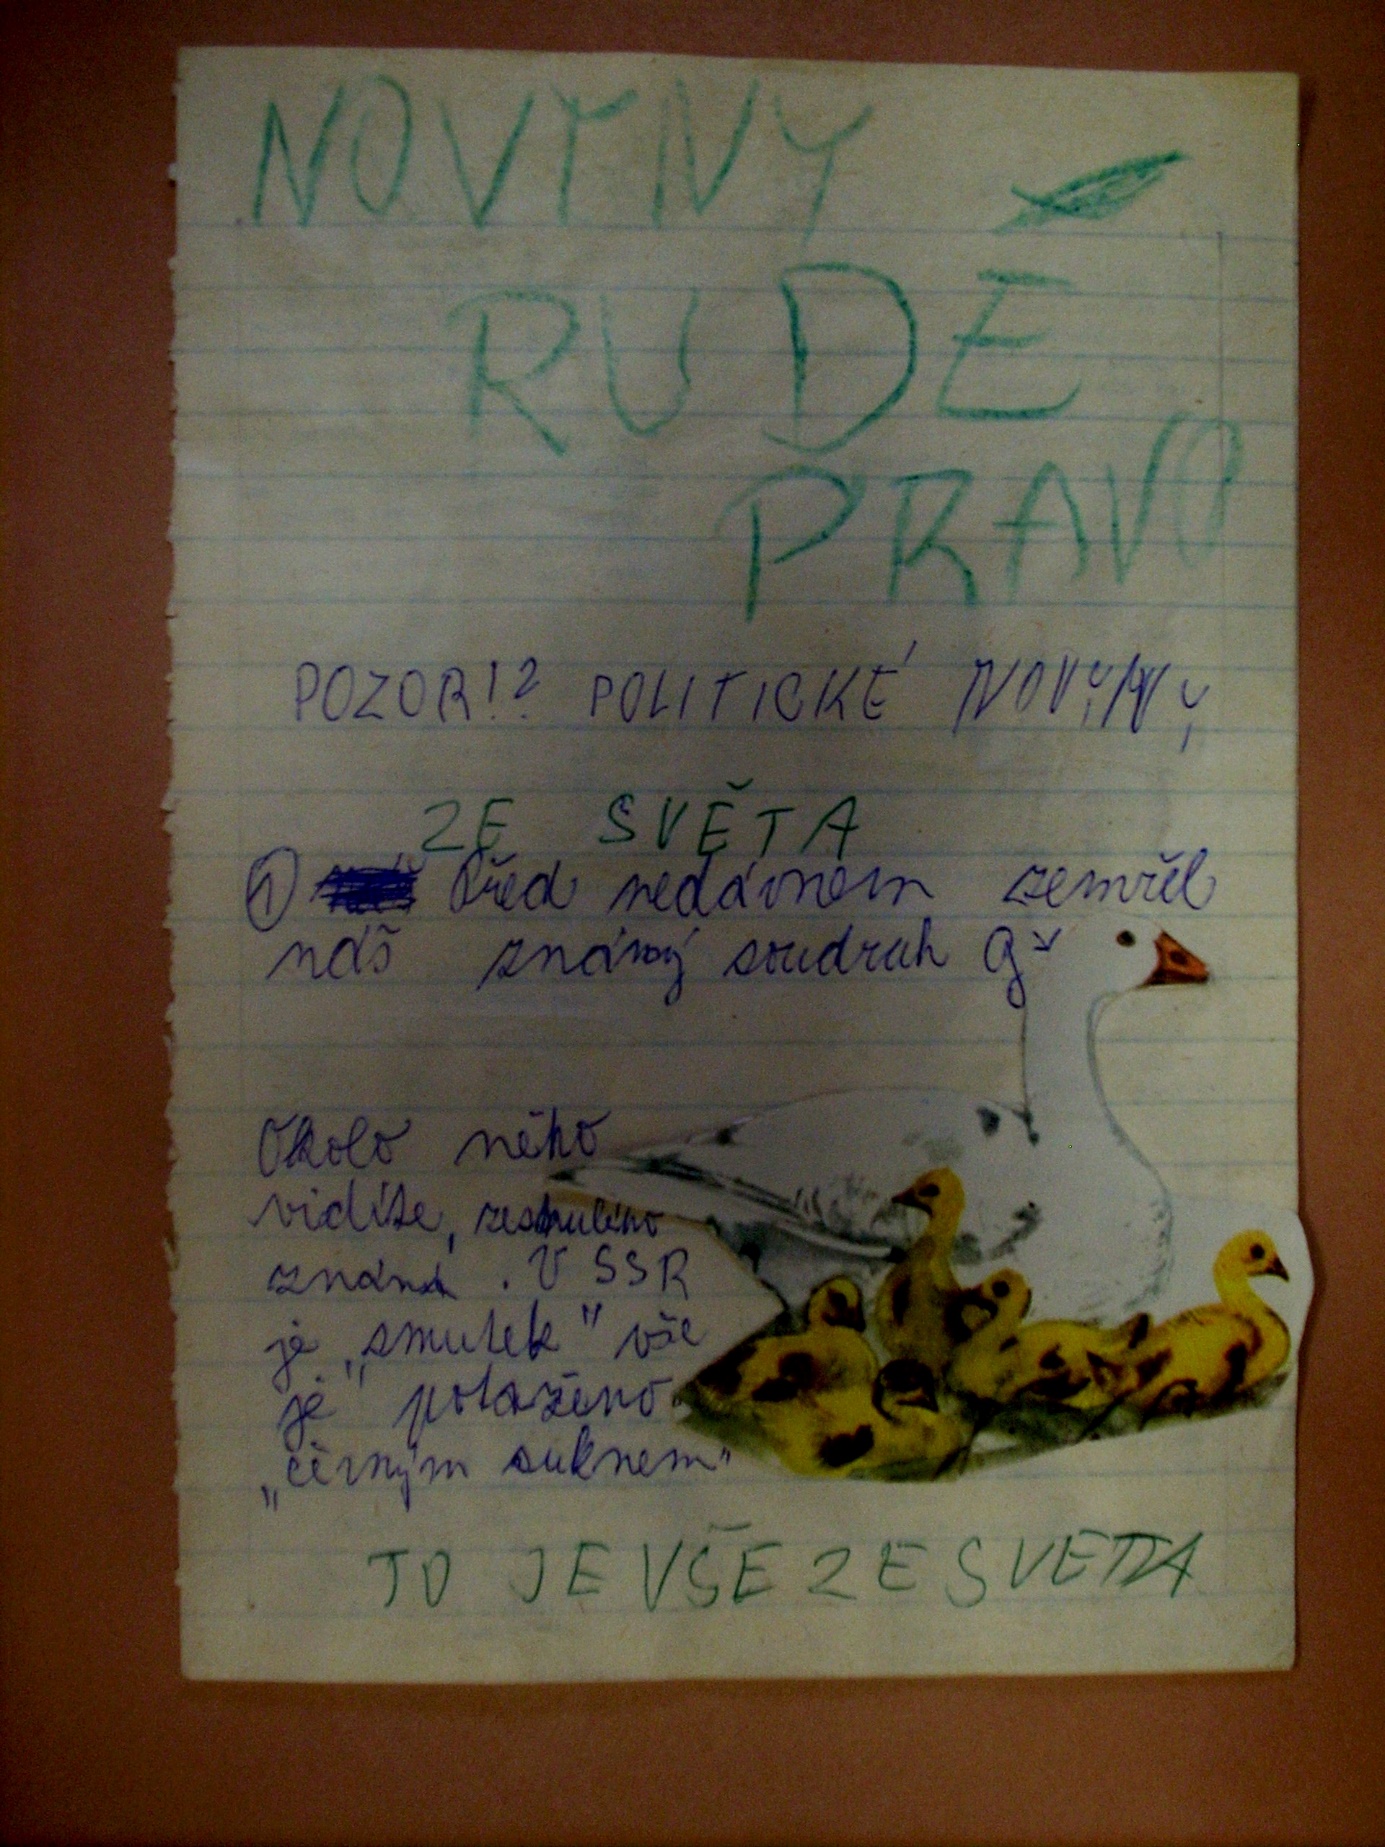 NOVINY
RUDÉ
PRAVO
POZOR!? POLITICKÉ NOVINY
ZE SVĚTA
1 Před nedávnem zemřel
náš známý soudruh
Okolo něho
vidíte,
známá. V SSSR
je "smutek" vše
je potaženo
"černým suknem"
TO JE VŠE ZE SVETA